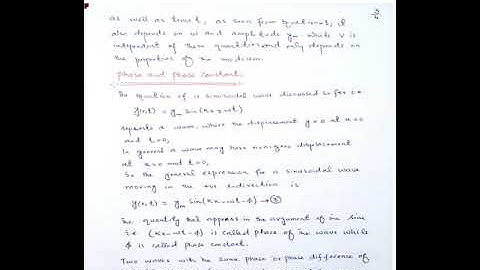 3/4
as well as time t, as seen from equation 1, it
also depends on ω and amplitude ym while v is
independent of these quantities and only depends on
the properties of the medium.
Phase and Phase constant:
The equation of a sinusoidal wave discussed so far i.e
y(x,t) = ym sin(kx-ωt)
represents a wave, where the displacement y=0 at x=0
and t=0,
In general a wave may have non-zero displacement
at x=0 and t=0,
So the general expression for a sinusoidal wave
moving in the +ve x-direction is
y(x,t) = ym sin(kx-ωt-ϕ) →
The quantity that appears in the argument of sine
i.e (kx-ωt-ϕ) is called phase of the wave while
ϕ is called phase constant.
Two waves with the same phase or phase difference of